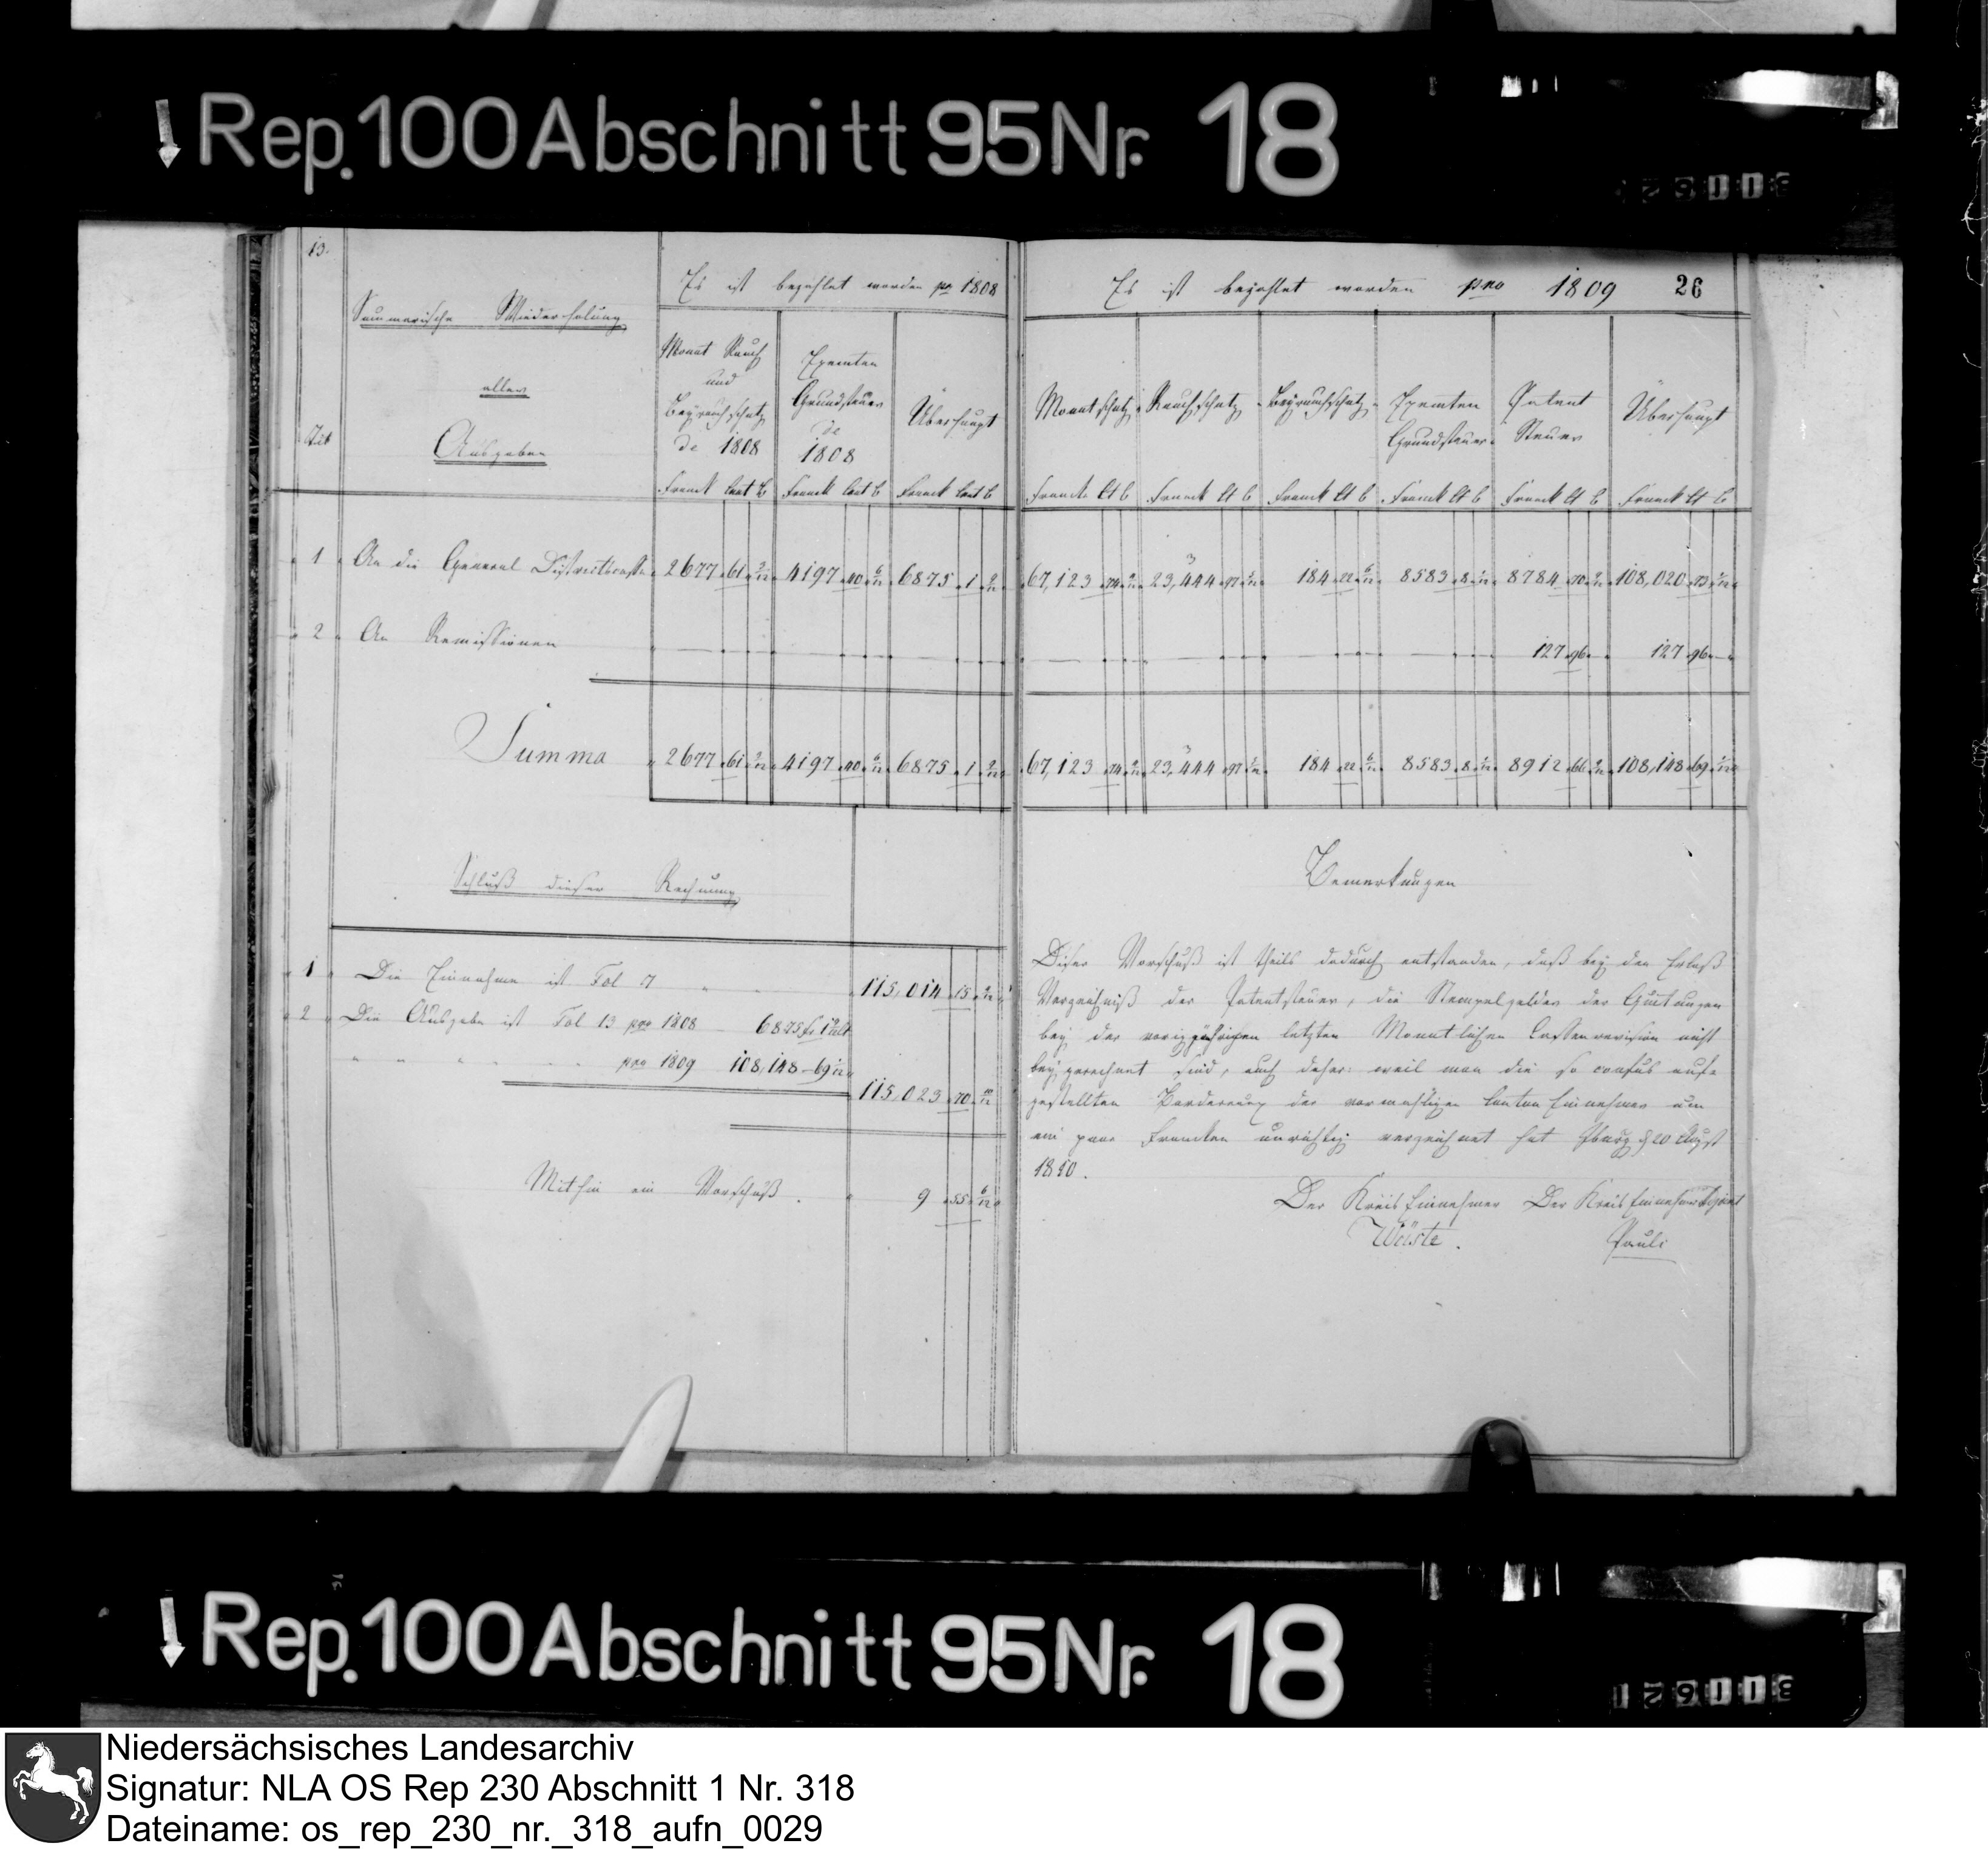 Rep. 100 Abschnitt 95 Nr. 18
13.
Summarische Wiederholung
aller
Ausgaben
Tit
Es ist bezahlt worden pro 1808
Monat Rauch
und
Beyrauchschatz
de 1808
Franck Cent C
Exemten
Grundsteuer
de
1808
Franck Cent C
Überhaupt
Franck Cent C
1 An die General Districtscasse 2677 61 9/12 4197 40 6/12 6875 1 9/12
2 An Remissionen
Summa 2677 61 9/12 4197 40 6/12 6875 1 9/12
Schluß dieser Rechnung
1 Die Einnahme ist Fol 7 115,014 15
2 Die Ausgabe ist Fol 13 pro 1808 6875 fr 1
" " " pro 1809 108,148 – 69
115,023 70 10/12
Mithin ein Vorschuß. 9 55 6/12
Es ist bezahlt worden pro 1809 26
Monatschatz
Franck Ct C
Rauchschatz
Franck Ct C
Beyrauchschatz
Franck Ct C
Exemten
Grundsteuer
Franck Ct C
Patent
Steuer
Franck Ct C
Überhaupt
Franck Ct C
67,123 74 23,444 97 184 22 6/12 8583 8 8784 70 108,020 73
127 96 127 96
67,123 74 23,444 97 184 22 6/12 8583 8 8912 66 108,148 69
Bemerkungen
Dieser Vorschuß ist theils dadurch entstanden, daß bey den Erlaß
Verzeichniß der Patentsteuer, die Stempelgelder der Quitungen
bey der vorigjährigen letzten Monatlichen Cassenrevision nicht
beygerechnet sind, auch daher: weil man die so confus auf=
gestellten Forderung der vormahligen Canton Einnehmer um
ein paar Francken unrichtig verzeichnet hat Iburg d 20 August
1810.
Der Kreis Einnehmer Der Kreis Einnehmer
Wüste. Pauli
Rep. 100 Abschnitt 95 Nr. 18
Niedersächsisches Landesarchiv
Signatur: NLA OS Rep 230 Abschnitt 1 Nr. 318
Dateiname: os_rep_230_nr._318_aufn_0029